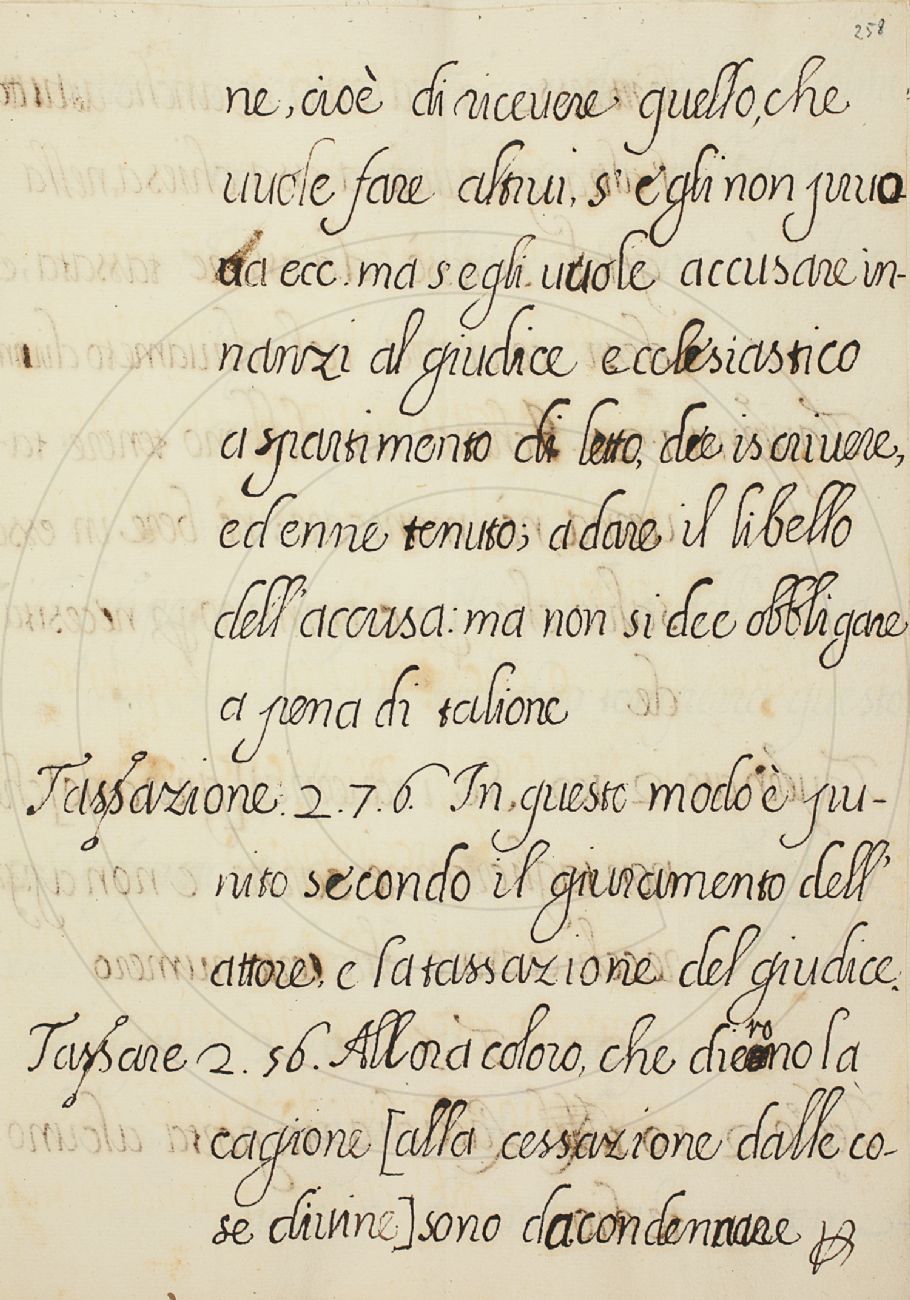 258
ne, cioè di ricevere quello, che
vuole fare altrui, s' egli non pruo-
va ecc. ma s egli vuole accusare in-
nanzi al giudice ecclesiastico
a spartimento di letto, dee iscrivere,
ed enne tenuto; a dare il libello
dell' accusa: ma non si dee obbligare
a pena di talione
Tassazione. 2. 7. 6. In questo modo è pu-
nito secondo il giuramento dell'
attore, e la tassazione del giudice.
Tassare 2. 56. Allora coloro, che diero no la
cagione [alla cessazione dalle co-
se divine] sono da condennare